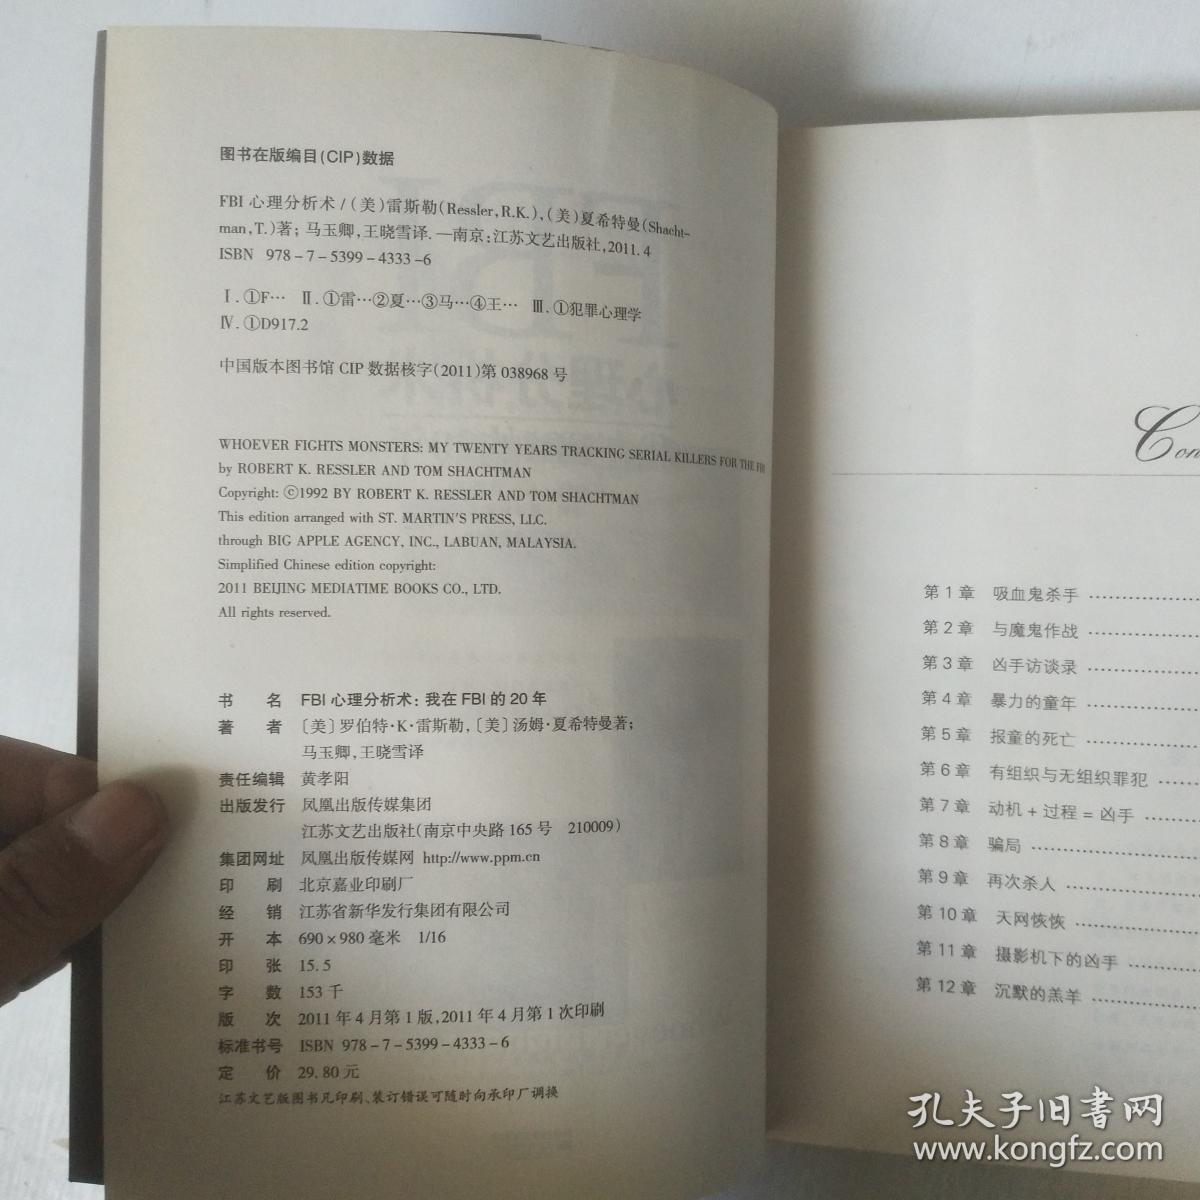 图书在版编目(CIP)数据
FBI 心理分析术/(美)雷斯勒(Ressler,R.K.),(美)夏希特曼(Shacht-
man,T.)著;马玉卿,王晓雪译.—南京:江苏文艺出版社,2011.4
ISBN 978-7-5399-4333-6
Ⅰ.①F… Ⅱ.①雷…②夏…③马…④王… Ⅲ.①犯罪心理学
Ⅳ.①D917.2
中国版本图书馆 CIP 数据核字(2011)第 038968 号
WHOEVER FIGHTS MONSTERS: MY TWENTY YEARS TRACKING SERIAL KILLERS FOR THE FBI
by ROBERT K. RESSLER AND TOM SHACHTMAN
Copyright: ©1992 BY ROBERT K. RESSLER AND TOM SHACHTMAN
This edition arranged with ST. MARTIN'S PRESS, LLC.
through BIG APPLE AGENCY, INC., LABUAN, MALAYSIA.
Simplified Chinese edition copyright:
2011 BEIJING MEDIATIME BOOKS CO., LTD.
All rights reserved.
书 名 FBI 心理分析术:我在 FBI 的 20 年
著 者 〔美〕罗伯特·K·雷斯勒,〔美〕汤姆·夏希特曼著;
马玉卿,王晓雪译
责任编辑 黄孝阳
出版发行 凤凰出版传媒集团
江苏文艺出版社(南京中央路 165 号 210009)
集团网址 凤凰出版传媒网 http://www.ppm.cn
印 刷 北京嘉业印刷厂
经 销 江苏省新华发行集团有限公司
开 本 690×980 毫米 1/16
印 张 15.5
字 数 153 千
版 次 2011 年 4 月第 1 版,2011 年 4 月第 1 次印刷
标准书号 ISBN 978-7-5399-4333-6
定 价 29.80 元
江苏文艺版图书凡印刷、装订错误可随时向承印厂调换
Con
第 1 章 吸血鬼杀手
第 2 章 与魔鬼作战
第 3 章 凶手访谈录
第 4 章 暴力的童年
第 5 章 报童的死亡
第 6 章 有组织与无组织罪犯
第 7 章 动机+过程=凶手
第 8 章 骗局
第 9 章 再次杀人
第 10 章 天网恢恢
第 11 章 摄影机下的凶手
第 12 章 沉默的羔羊
孔夫子旧书网
www.kongfz.com